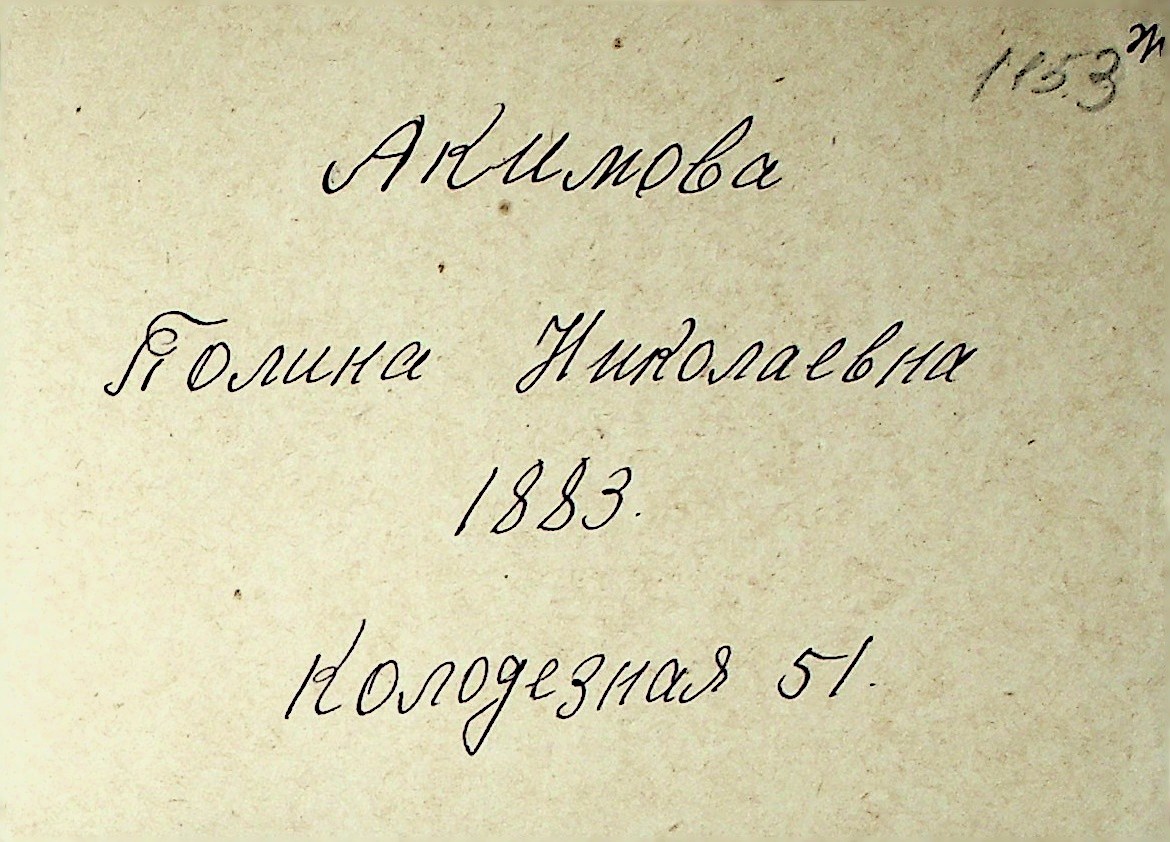 Акимова
Полина Николаевна
1883.
Колодезная 51.